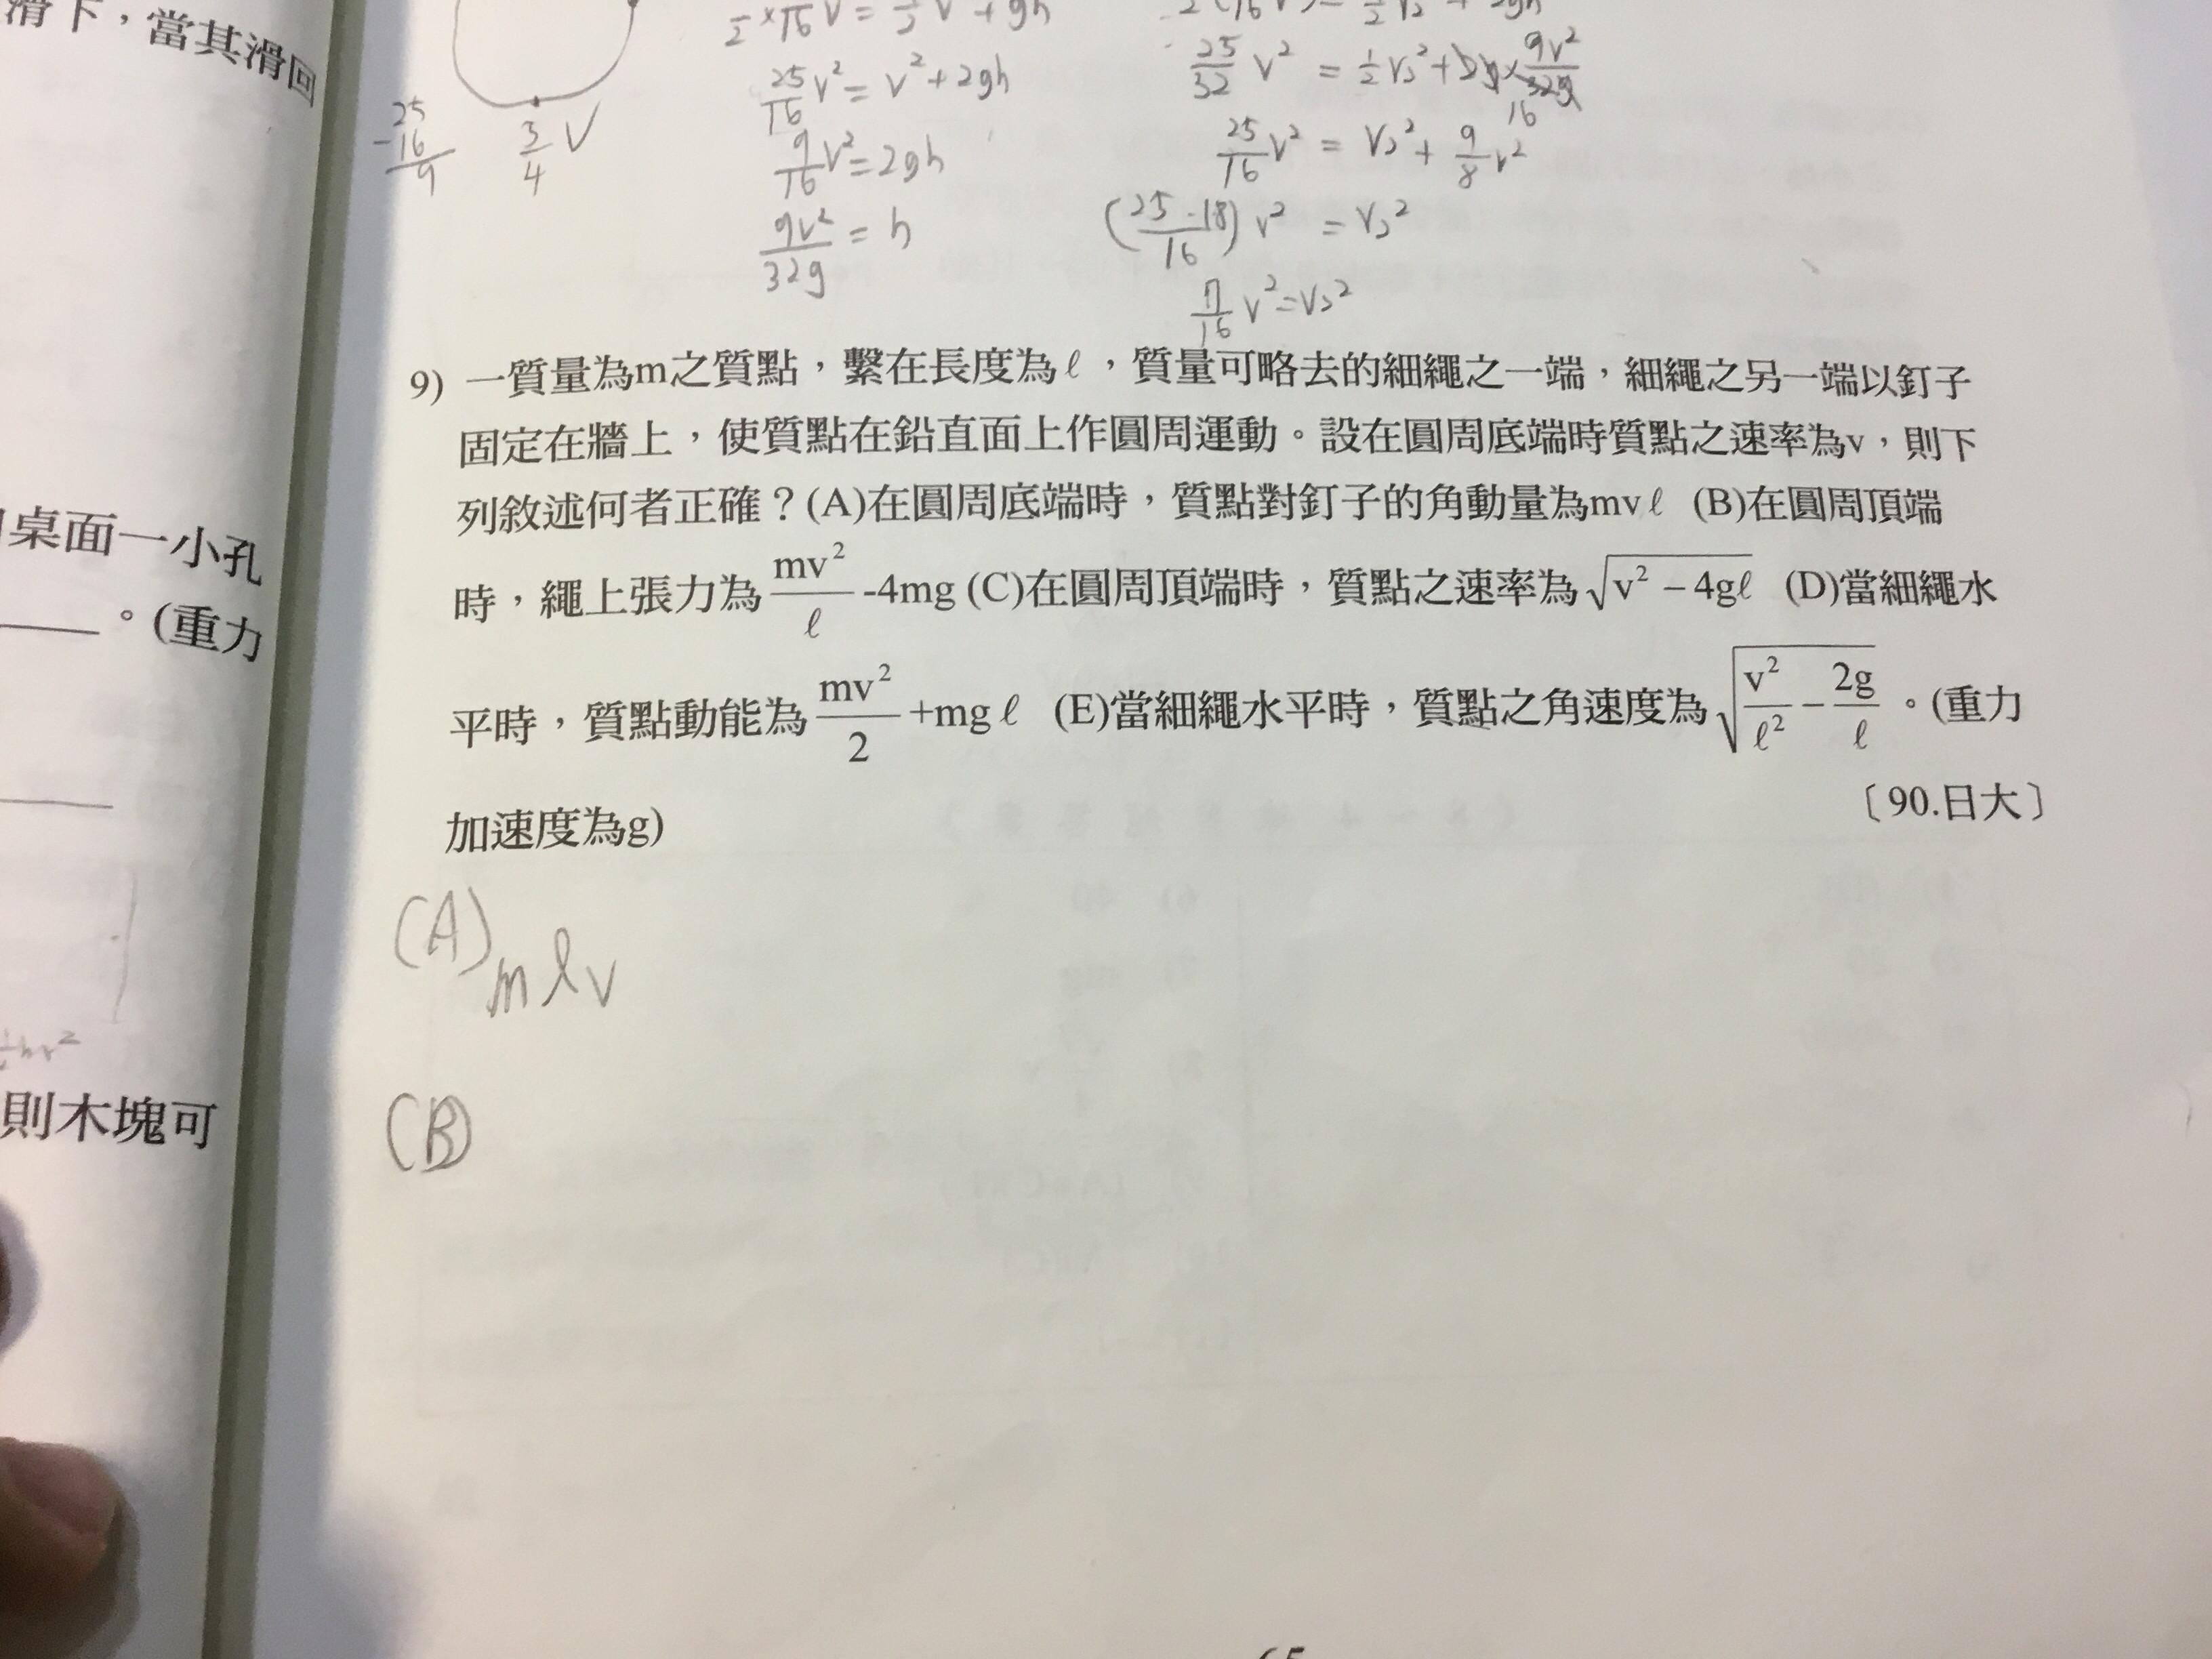 滑下，當其滑回
桌面一小孔
。(重力
則木塊可
25
-16
9
3/4 V
25/16 v² = v² + 2gh
9/16 v² = 2gh
9v²/32g = h
25/32 v² = 1/2 v₂² + 2g × 9v²/32g
16
25/16 v² = v₂² + 9/8 v²
(25-18/16) v² = v₂²
7/16 v² = v₂²
9) 一質量為m之質點，繫在長度為ℓ，質量可略去的細繩之一端，細繩之另一端以釘子
固定在牆上，使質點在鉛直面上作圓周運動。設在圓周底端時質點之速率為v，則下
列敘述何者正確？(A)在圓周底端時，質點對釘子的角動量為mvℓ (B)在圓周頂端
時，繩上張力為 mv²/ℓ -4mg (C)在圓周頂端時，質點之速率為√(v² – 4gℓ) (D)當細繩水
平時，質點動能為 mv²/2 +mgℓ (E)當細繩水平時，質點之角速度為√(v²/ℓ² – 2g/ℓ)。(重力
加速度為g)
〔90.日大〕
(A) mℓv
(B)